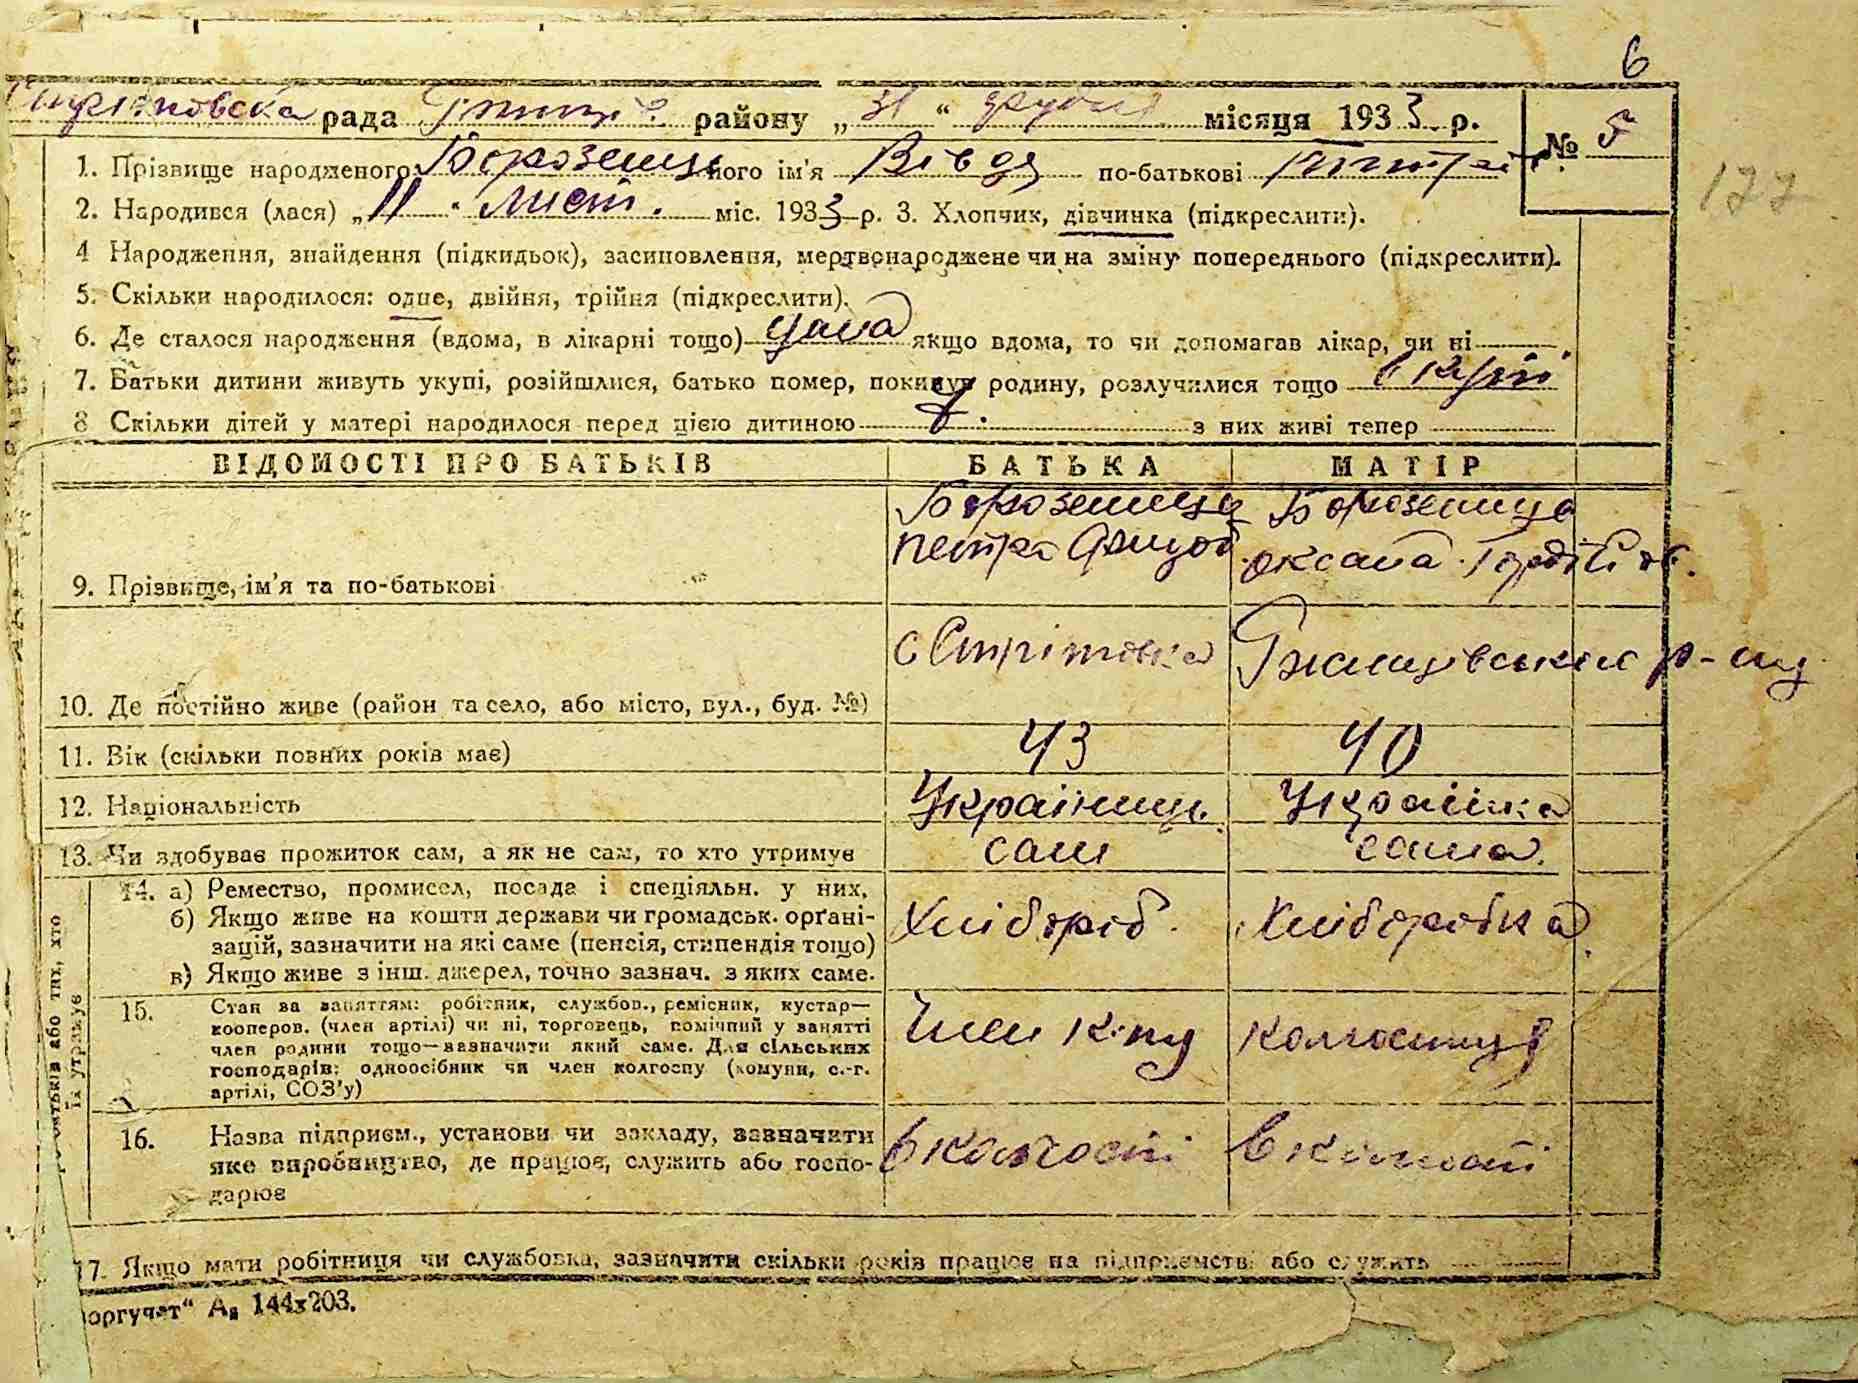 6
Стрітовська рада Ржищів. району „31“ грудня місяця 1933 р. № 5
1. Прізвище народженого Борозенець його ім'я Вівдя по-батькові Петрів.
177
2. Народився (лася) „11 . лист. міс. 1933 р. 3. Хлопчик, дівчинка (підкреслити).
4 Народження, знайдення (підкидьок), засиновлення, мертвонароджене чи на зміну попереднього (підкреслити).
5. Скільки народилося: одне, двійня, трійня (підкреслити).
6. Де сталося народження (вдома, в лікарні тощо) якщо вдома, то чи допомагав лікар, чи ні
7. Батьки дитини живуть укупі, розійшлися, батько помер, покинув родину, розлучилися тощо вкупі
8 Скільки дітей у матері народилося перед цією дитиною з них живі тепер
ВІДОМОСТІ ПРО БАТЬКІВ БАТЬКА МАТІР
Борозенець Борозенець
Петро Оксана Гордіївн.
9. Прізвище, ім'я та по-батькові
с Стрітовка Ржищівського р-ну
10. Де постійно живе (район та село, або місто, вул., буд. №)
11. Вік (скільки повних років має) 43 40
12. Національність Українець. Українка
13. Чи здобуває прожиток сам, а як не сам, то хто утримує сам сама.
14. а) Ремество, промисел, посада і спеціяльн. у них.
б) Якщо живе на кошти держави чи громадськ. орґані-
зацій, зазначити на які саме (пенсія, стипендія тощо) Хлібороб. Хліборобка
в) Якщо живе з інш. джерел, точно зазнач. з яких саме.
15. Стан за заняттям: робітник, службов., ремісник, кустар—
кооперов. (член артілі) чи ні, торговець, помічний у занятті
член родини тощо—зазначити який саме. Для сільських
господарів: одноосібник чи член колгоспу (комуни, с.-г.
артілі, СОЗ'у)
Член к-пу колгоспу
16. Назва підприєм., установи чи закладу, зазначити
яке виробництво, де працює, служить або госпо-
дарює
в колгоспі в колгоспі
батьків або тих, хто
її утримує
17. Якщо мати робітниця чи службовка, зазначити скільки років працює на підприємстві або служить
оргучет“ А₈ 144х203.